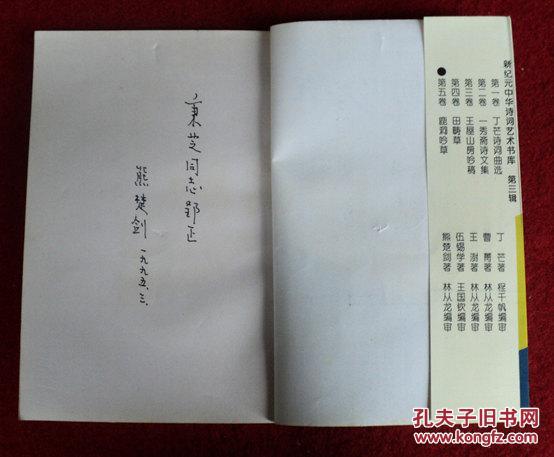 秉芝同志郢正
熊楚剑 一九九五.三.
新纪元中华诗词艺术书库 第三辑
第一卷 丁芒诗词曲选 丁芒著 程千帆编审
第二卷 一秀斋诗文集 曹菁著 林从龙编审
第三卷 王屋山房吟稿 王澍著 林从龙编审
第四卷 田畴草 伍锡学著 王国钦编审
●第五卷 鹿洞吟草 熊楚剑著 林从龙编审
孔夫子旧书网
www.kongfz.com